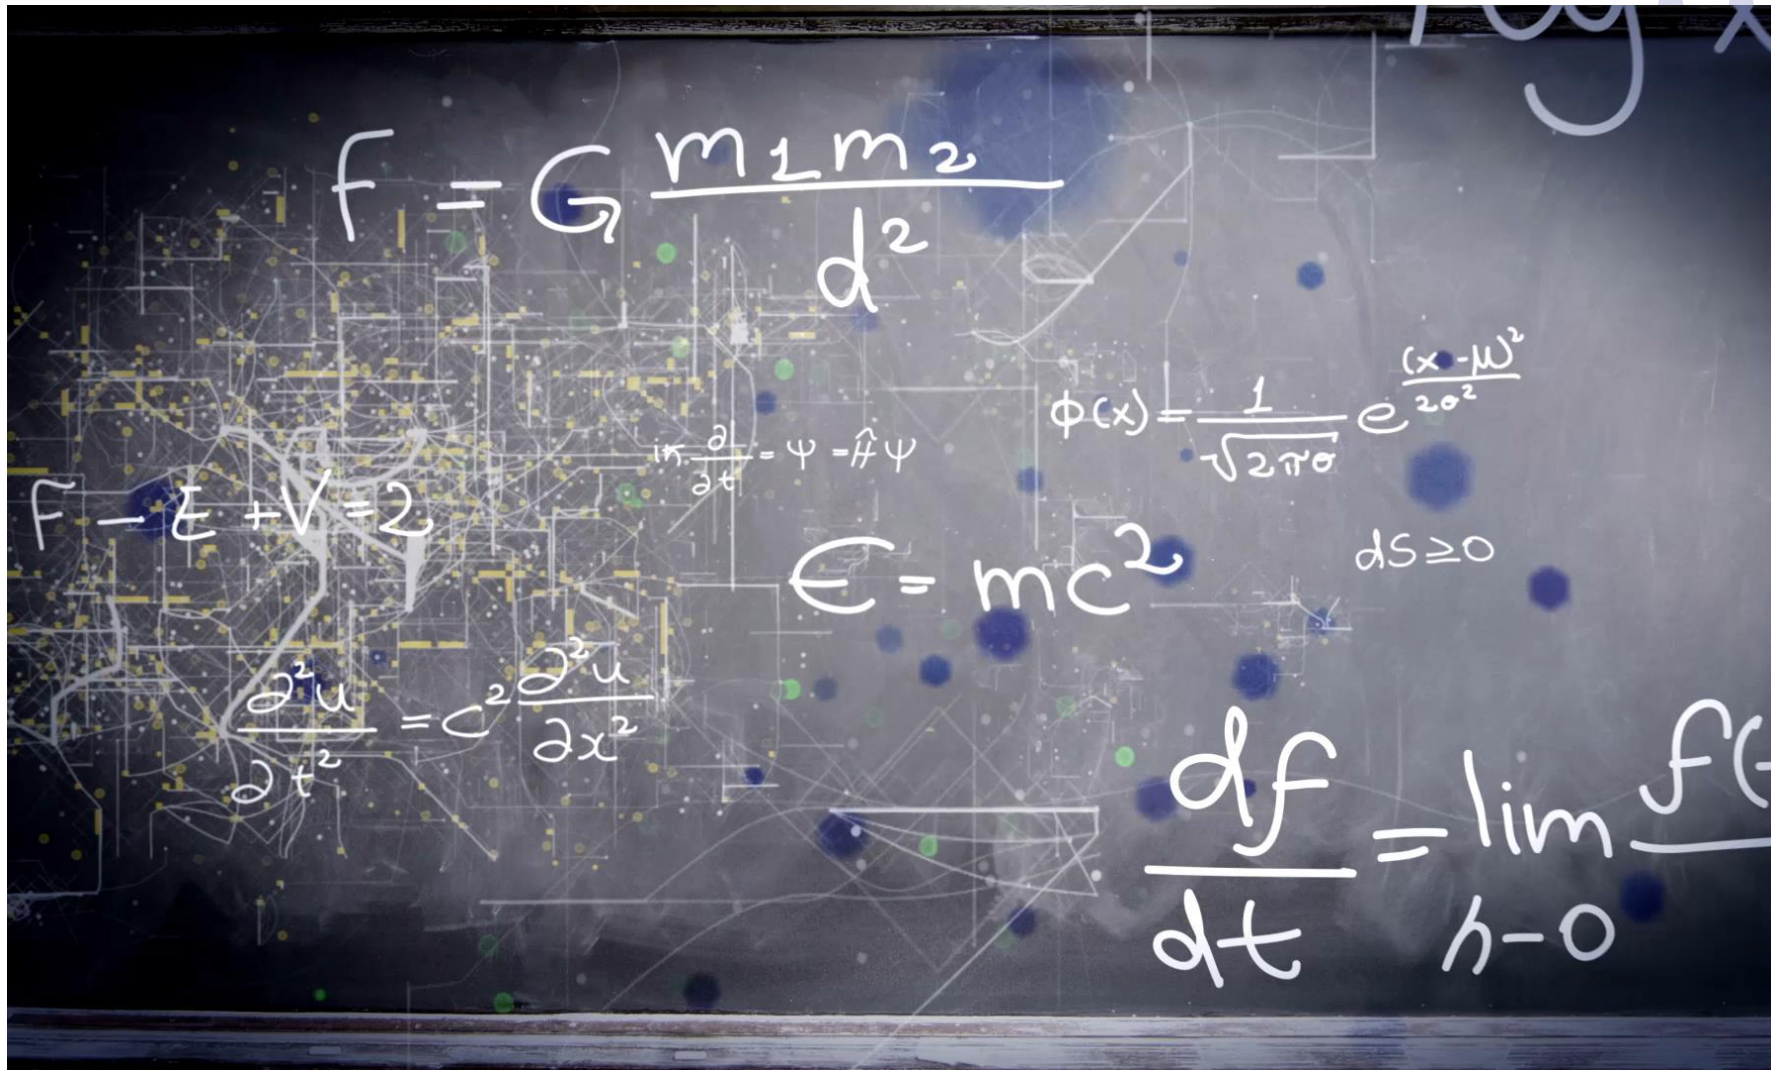 log x
F = G m1 m2 / d²
ϕ(x) = 1 / √2πσ e (x - μ)² / 2σ²
iħ ∂ / ∂t = Ψ = Ĥ Ψ
F - E + V = 2
dS ≥ 0
E = mc²
∂²u / ∂t² = c² ∂²u / ∂x²
df / dt = lim h-0 f(